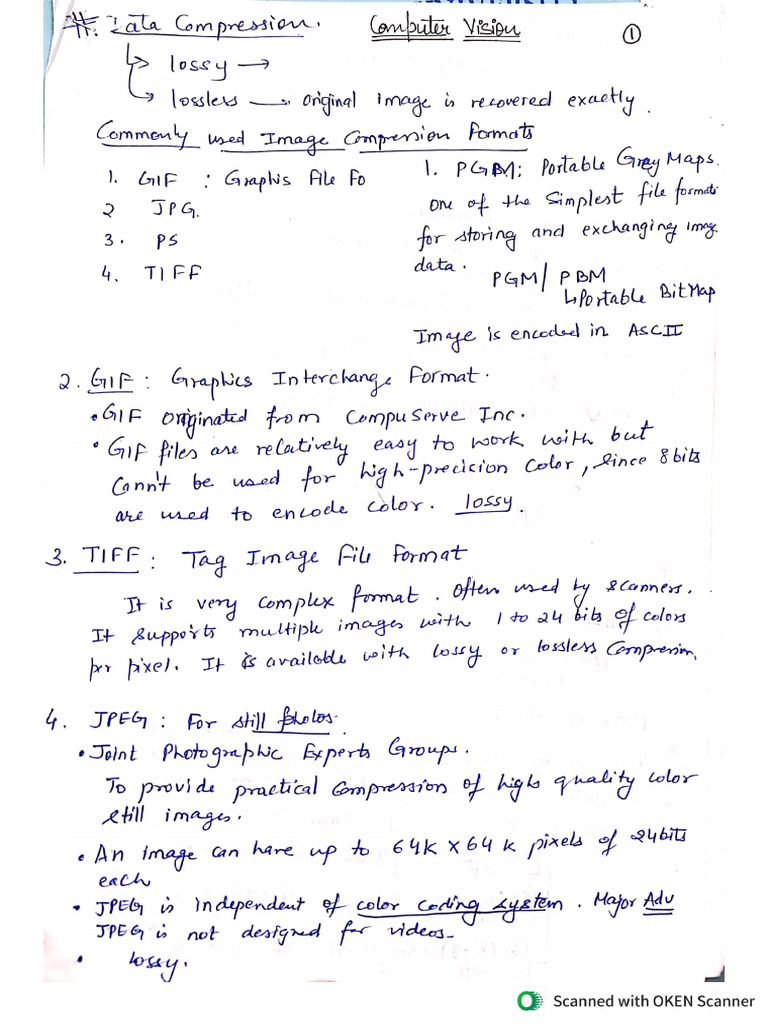 # Data Compression. Computer Vision 1
lossy →
lossless → original image is recovered exactly.
Commonly used Image Compression formats
1. GIF : Graphis File Fo
2 JPG.
3. PS
4. TIFF
1. PGM: Portable Gray Maps.
one of the simplest file formats
for storing and exchanging imag
data.
PGM/ PBM
↳Portable BitMap
Image is encoded in ASCII
2. GIF : Graphics Interchange Format.
• GIF originated from CompuServe Inc.
• GIF files are relatively easy to work with but
Cann't be used for high-precision color, since 8 bits
are used to encode color. lossy.
3. TIFF : Tag Image File Format
It is very complex format. Often used by scanners.
It supports multiple images with 1 to 24 bits of colors
per pixel. It is available with lossy or lossless Compression.
4. JPEG : For still photos.
• Joint Photographic Experts Groups.
To provide practical compression of high quality color
still images.
• An image can have up to 64K X 64 K pixels of 24bits
each
• JPEG is independent of color coding system. Major Adv
JPEG is not designed for videos-
• lossy.
Scanned with OKEN Scanner